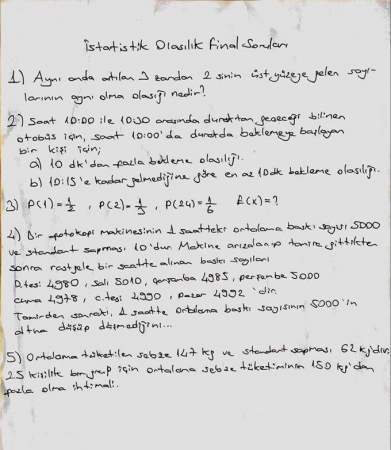 İstatistik Olasılık Final Soruları
1) Aynı anda atılan 3 zardan 2 sinin üst yüzeye gelen sayı-
larının aynı olma olasılığı nedir?
2) Saat 10:00 ile 10:30 arasında duraktan geçeceği bilinen
otobüs için, saat 10:00'da durakta beklemeye başlayan
bir kişi için;
a) 10 dk'dan fazla bekleme olasılığı.
b) 10:15'e kadar gelmediğine göre en az 10 dk bekleme olasılığı.
3) P(1)=1/2 , P(2)=1/3 , P(24)=1/6 E(x)=?
4) Bir fotokopi makinesinin 1 saatteki ortalama baskı sayısı 5000
ve standart sapması 10'dur. Makine arızalanıp tamire gittikten
sonra rastgele bir saatte alınan baskı sayıları
P.tesi 4980, salı 5010, çarşamba 4985, perşembe 5000
cuma 4978, c.tesi 4990, pazar 4992 'dir.
Tamirden sonraki, 1 saatte ortalama baskı sayısının 5000'in
altına düşüp düşmediğini...
5) Ortalama tüketilen sebze 147 kg ve standart sapması 62 kg'dır.
25 kişilik bir grup için ortalama sebze tüketiminin 150 kg'dan
fazla olma ihtimali.